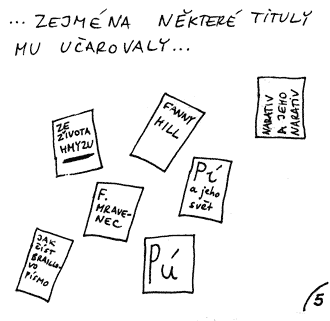 ... ZEJMÉNA NĚKTERÉ TITULY
MU UČAROVALY...
ZE
ŽIVOTA
HMYZU
FANNY
HILL
NARATIV
A JEHO
NARATIV
F.
MRAVE-
NEC
Pí
a jeho
svět
JAK
ČÍST
BRAILLO-
VO
PÍSMO
Pú
5